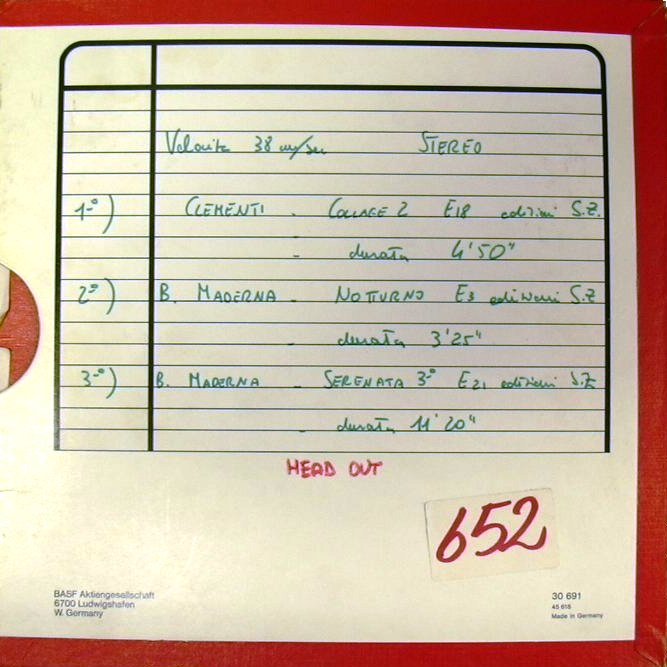 Velocità 38 cm/sec STEREO
1°) CLEMENTI - COLLAGE 2 E18 edizioni S.Z.
- durata 4'50"
2°) B. MADERNA - NOTTURNO E3 edizioni S.Z
- durata 3'25"
3°) B. MADERNA - SERENATA 3° E21 edizioni S.Z
- durata 11'20"
HEAD OUT
652
BASF Aktiengesellschaft
6700 Ludwigshafen
W. Germany
30 691
45 618
Made in Germany